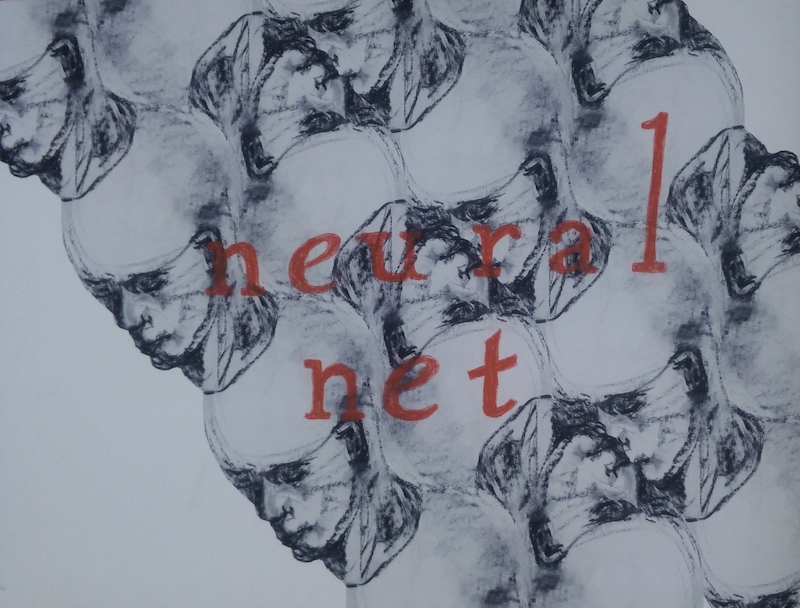 neural
net